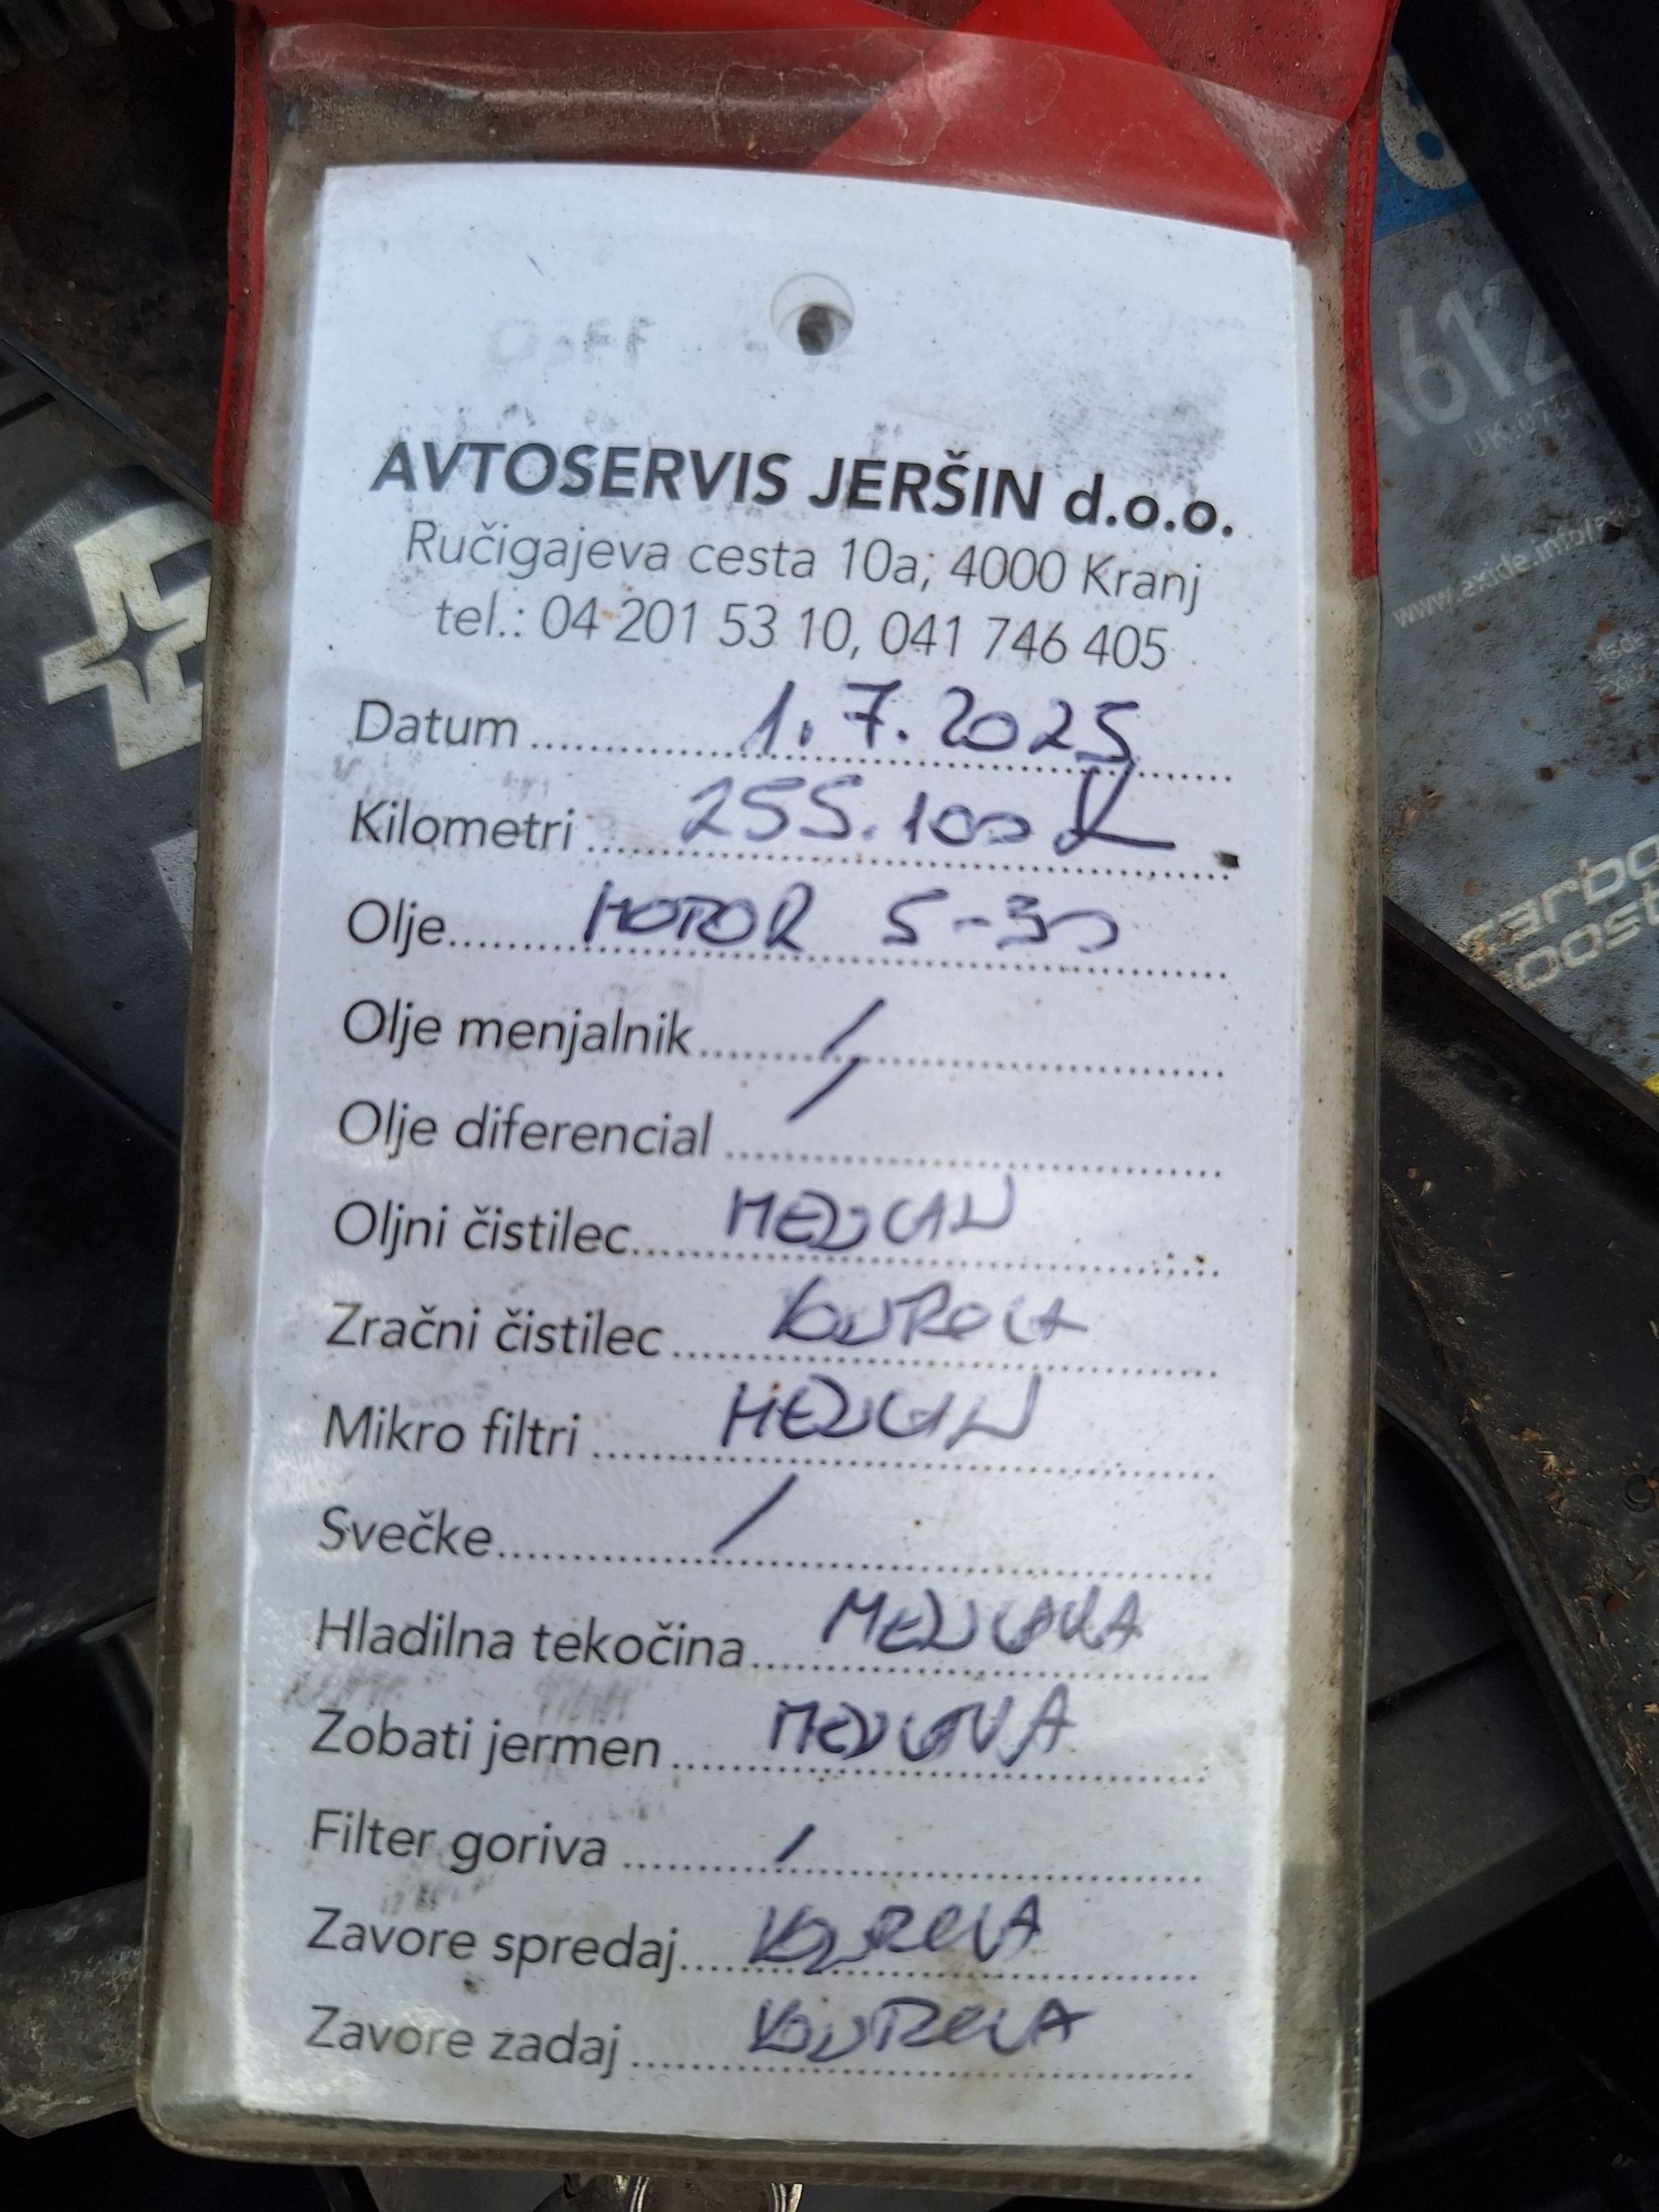 AVTOSERVIS JERŠIN d.o.o.
Ručigajeva cesta 10a; 4000 Kranj
tel.: 04 201 53 10, 041 746 405
Datum 1.7.2025
Kilometri 255.100
Olje MOTOR 5-30
Olje menjalnik /
Olje diferencial /
Oljni čistilec MENJAN
Zračni čistilec KONTROLA
Mikro filtri MENJAN
Svečke /
Hladilna tekočina MENJANA
Zobati jermen MENJAN
Filter goriva /
Zavore spredaj KONTROLA
Zavore zadaj KONTROLA
A612
www.exide.info
carbo
boost